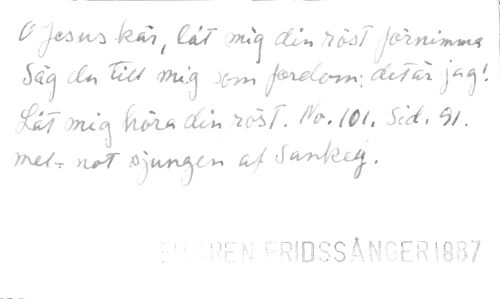 O Jesus kär, låt mig din röst förnimma
Säg du till mig som fordom: det är jag!
Låt mig höra din röst. No. 101. Sid. 91.
mel= not sjungen af Sankey.
FRIDSSÅNGER 1887